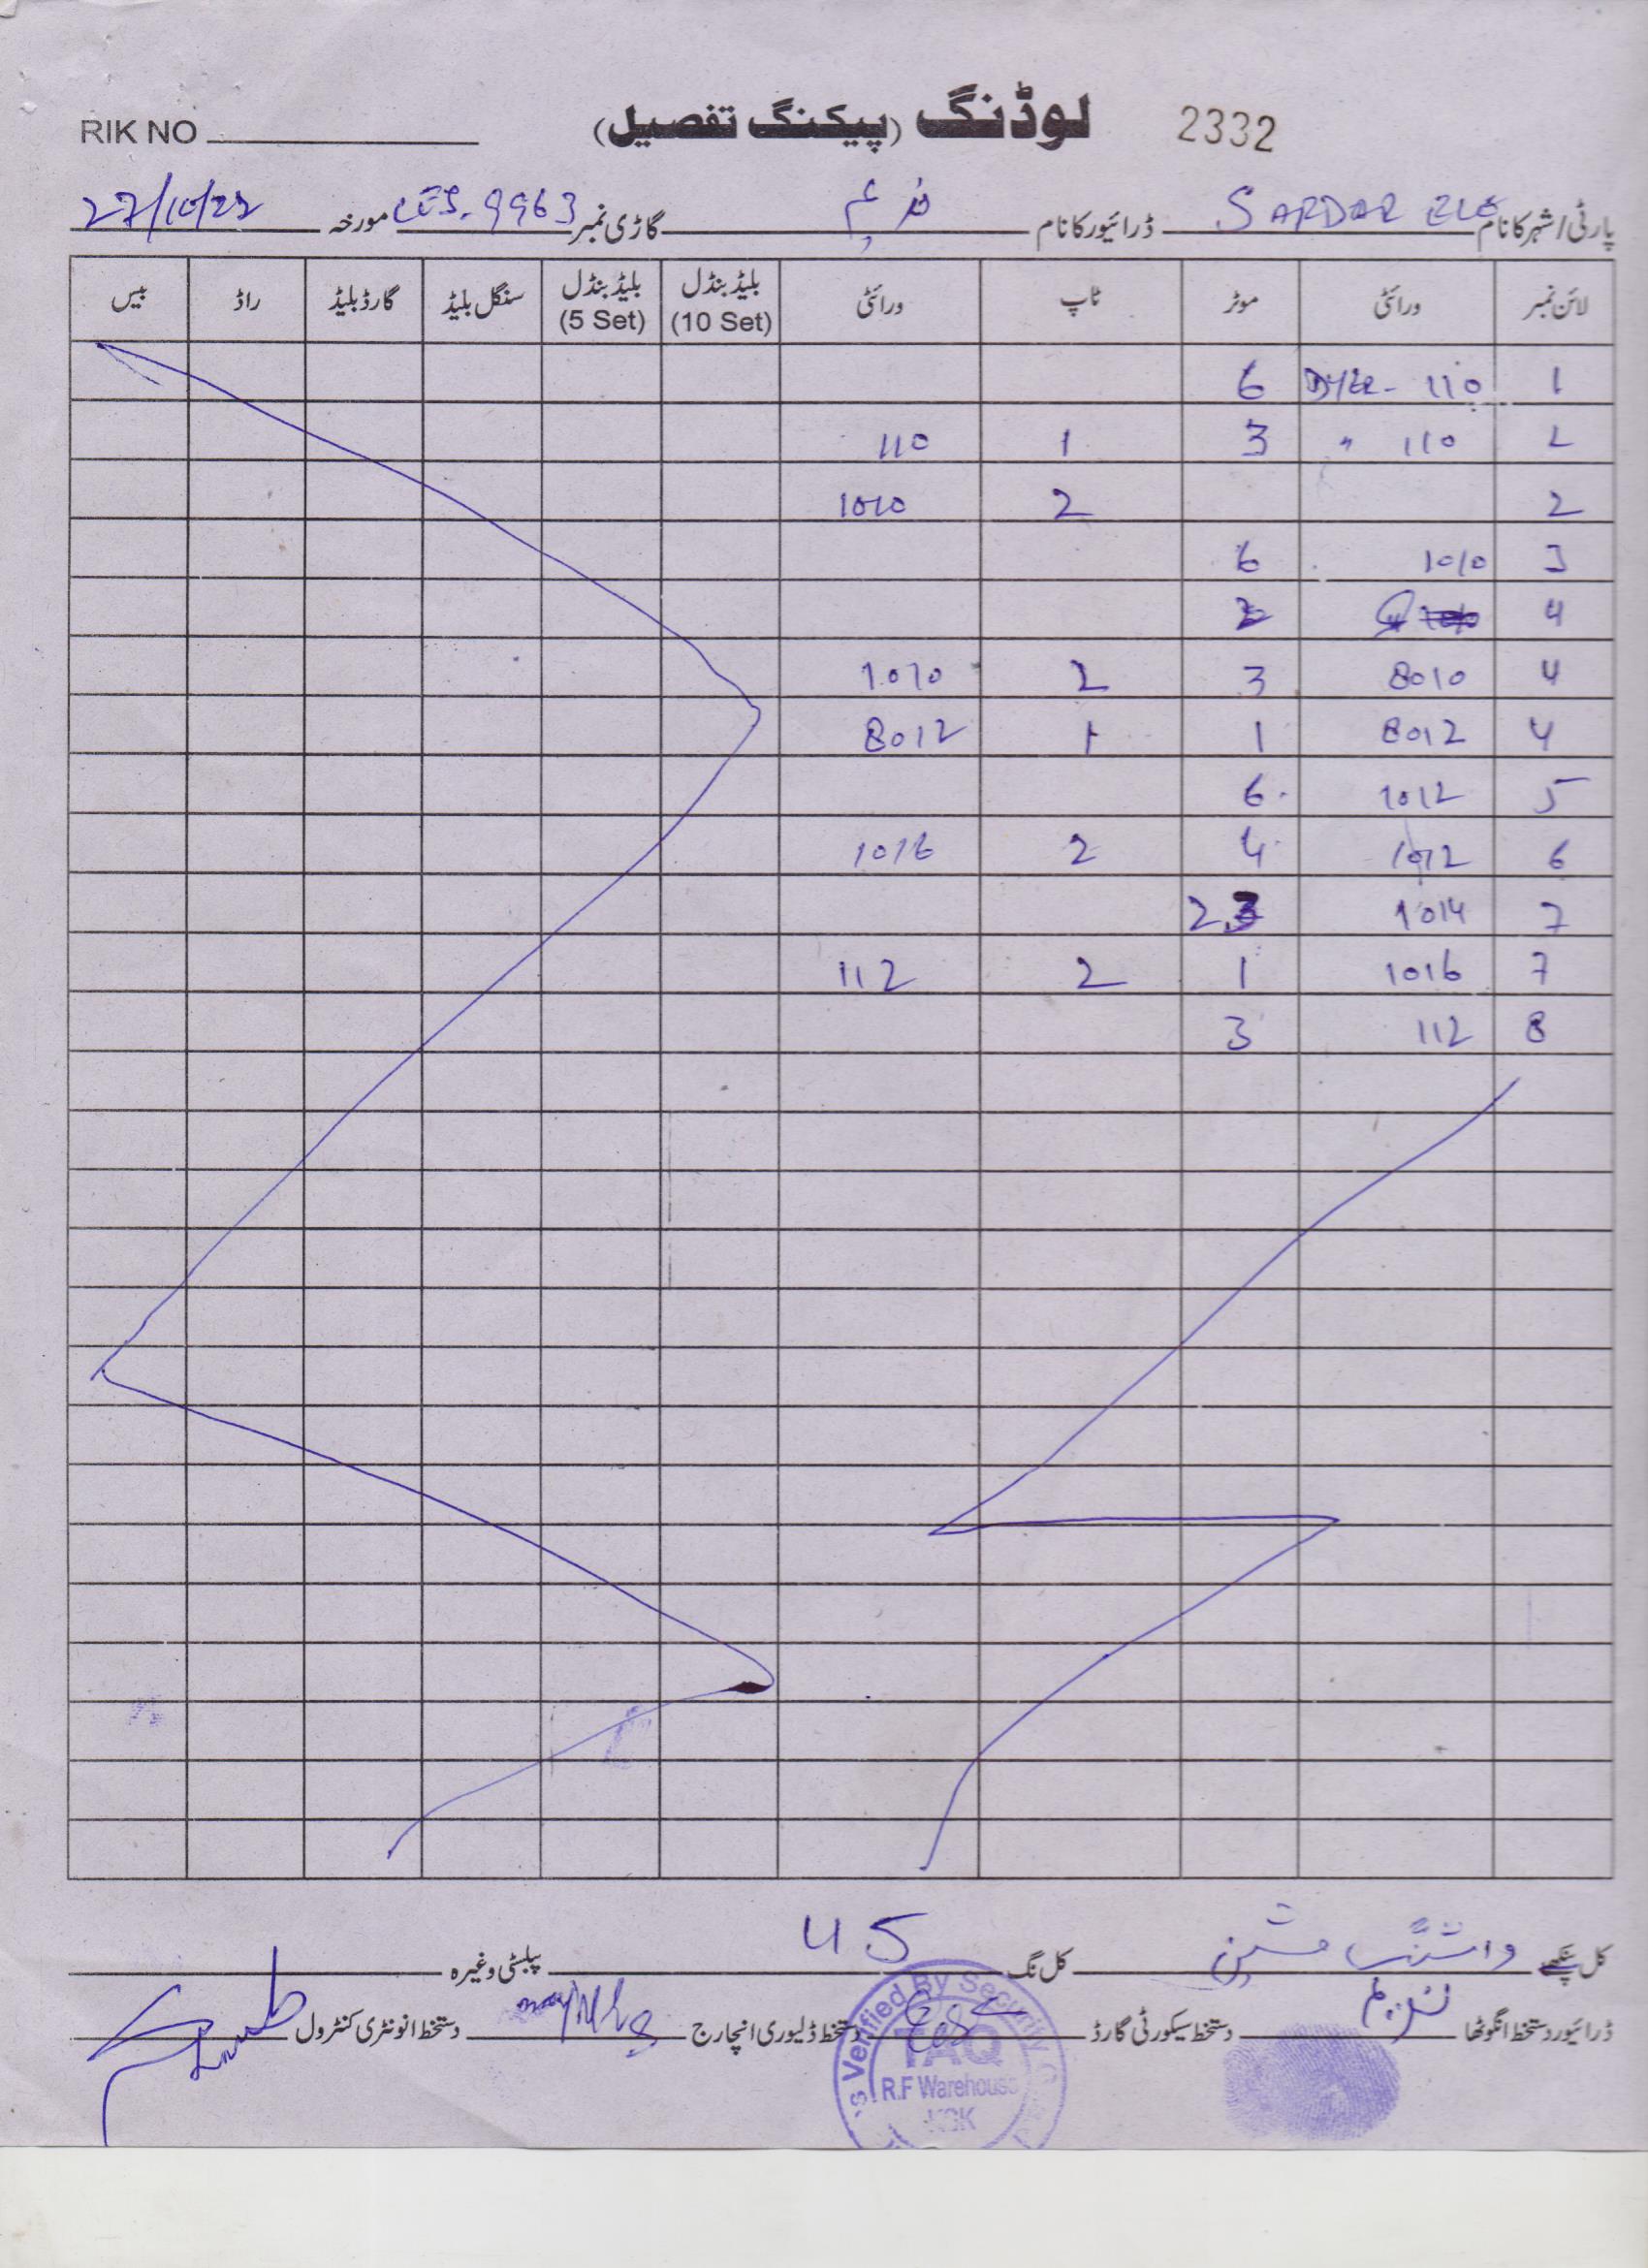 RIK NO لوڈنگ (پیکنگ تفصیل) 2332
پارٹی/شہر کا نام SARDAR ELE ڈرائیور کا نام گاڑی نمبر LES. 9963 مورخہ 27/10/22
لائن نمبر ورائٹی موٹر ٹاپ ورائٹی بلیڈ بنڈل (10 Set) بلیڈ بنڈل (5 Set) سنگل بلیڈ گارڈ بلیڈ راڈ بیس
1 DYER- 110 6
2 " 110 3 1 110
2 2 1010
3 1010 6
4 2
4 8010 3 2 1010
4 8012 1 1 8012
5 1012 6
6 1012 4 2 1016
7 1014 2,3
7 1016 1 2 112
8 112 3
کل پنکھے واشنگ مشین کل نگ 45 پبلسٹی وغیرہ
ڈرائیور دستخط انگوٹھا دستخط سیکورٹی گارڈ دستخط ڈلیوری انچارج دستخط انونٹری کنٹرول
Verified By Security
TAQ
R.F Warehouse